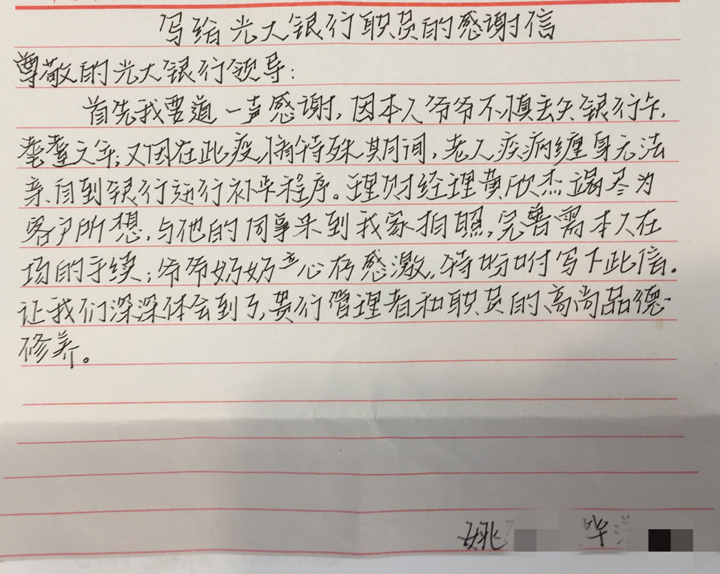 写给光大银行职员的感谢信
尊敬的光大银行领导:
首先我要道一声感谢,因本人爷爷不慎丢失银行卡,
耄耋之年;又因在此疫情特殊期间,老人疾病缠身无法
亲自到银行进行补办程序。理财经理黄欣杰竭尽为
客户所想,与他的同事来到我家拍照,完善需本人在
场的手续;爷爷奶奶心存感激,特吩咐写下此信。
让我们深深体会到了,贵行管理者和职员的高尚品德
修养。
姚 毕